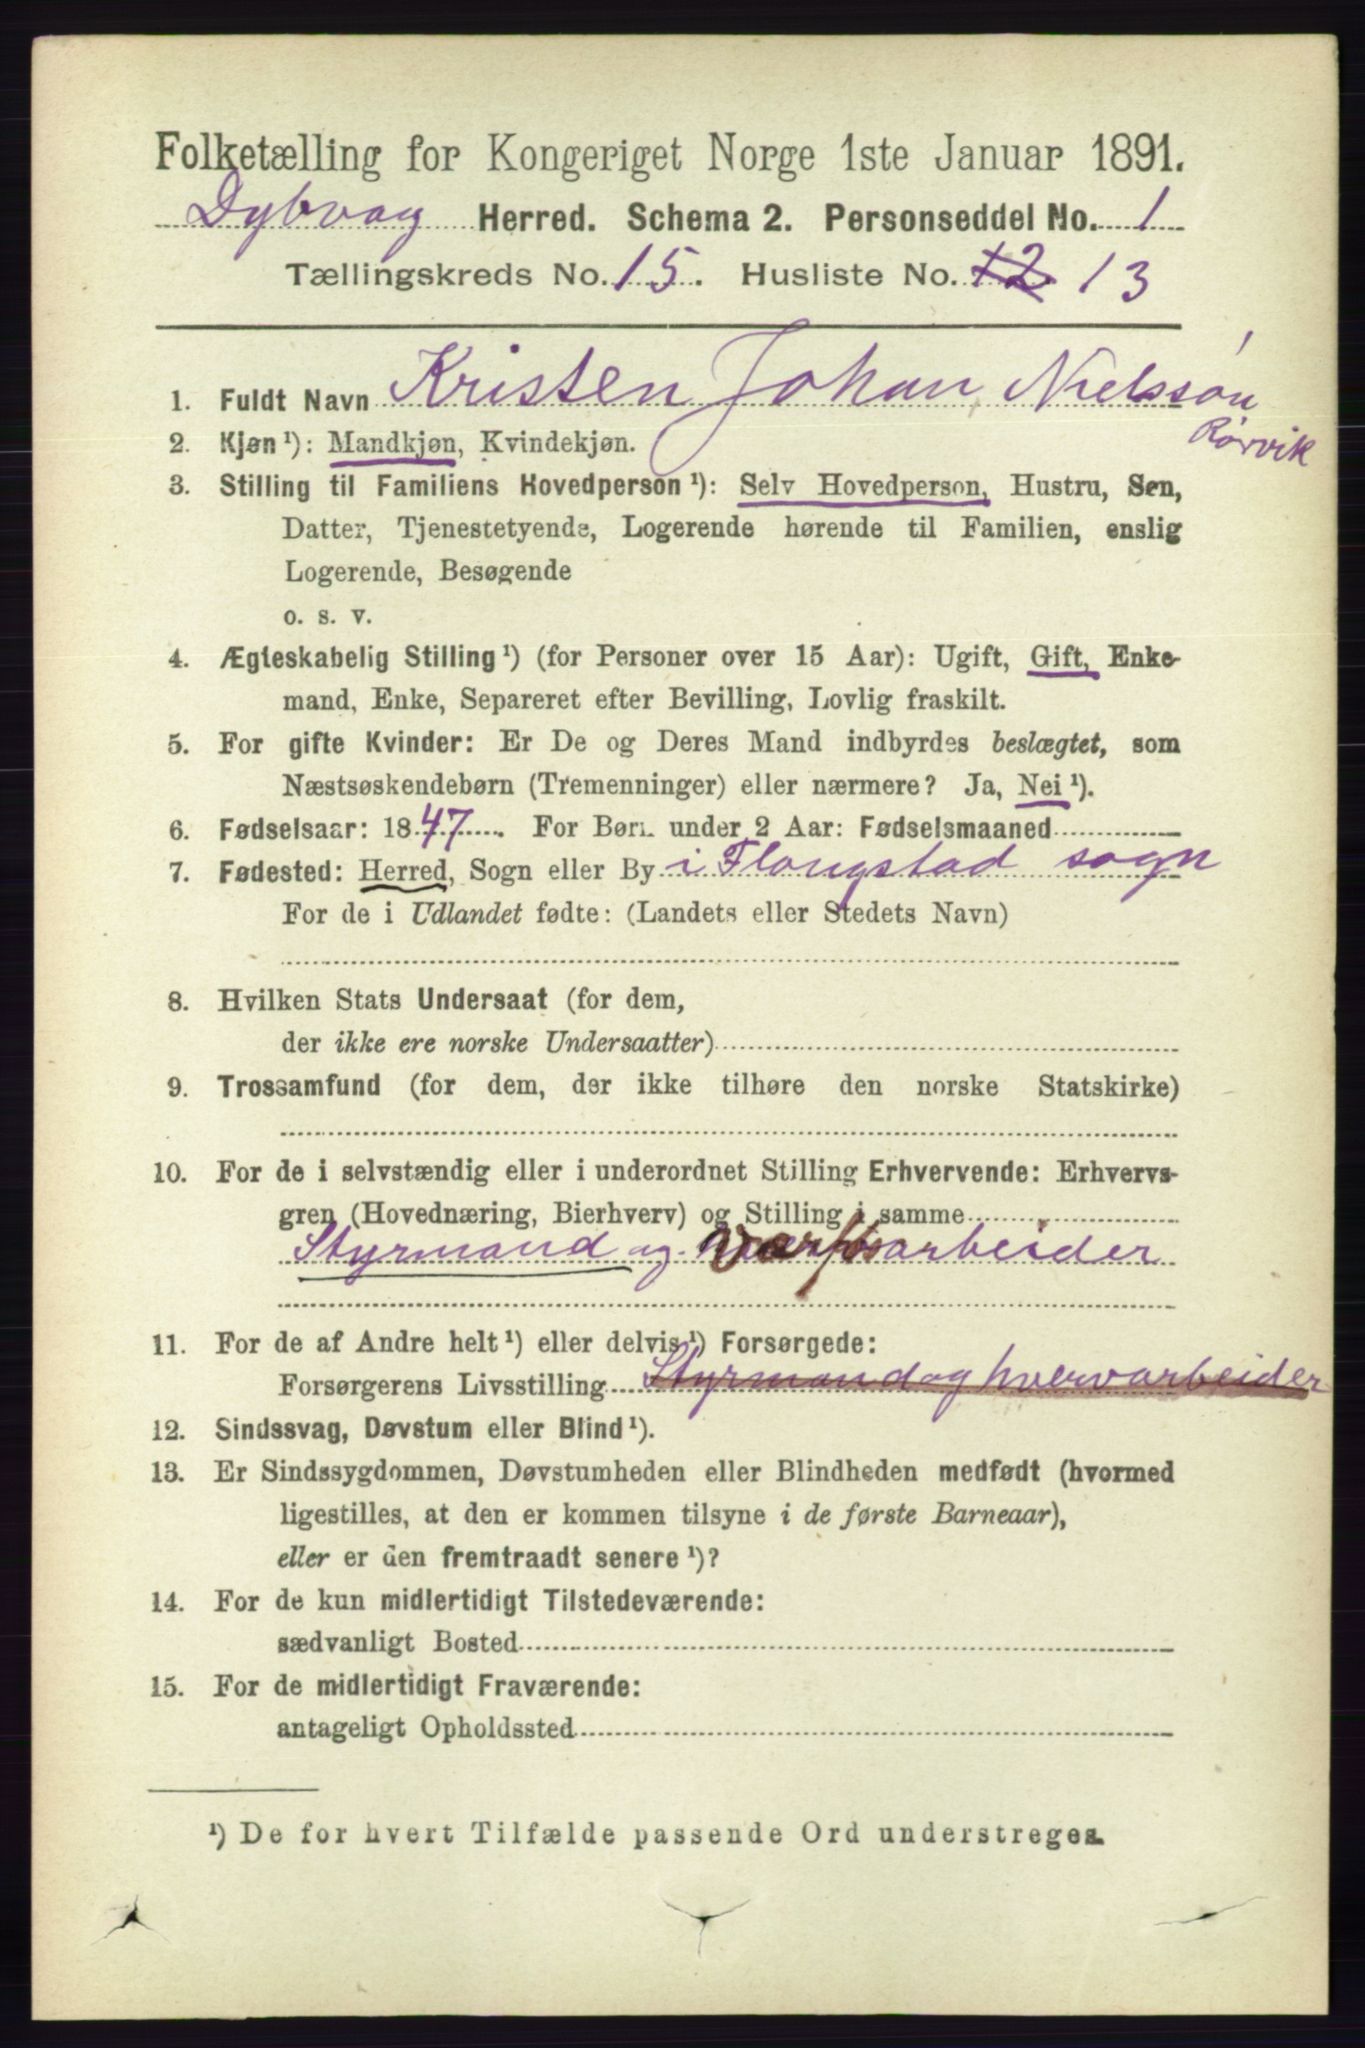 Folketælling for Kongeriget Norge 1ste Januar 1891.
Dybvag Herred. Schema 2. Personseddel No. 1
Tællingskreds No. 15. Husliste No. 12 13
1. Fuldt Navn Kristen Johan Nielssøn
Rørvik
2. Kjøn¹): Mandkjøn, Kvindekjøn.
3. Stilling til Familiens Hovedperson¹): Selv Hovedperson, Hustru, Søn,
Datter, Tjenestetyende, Logerende hørende til Familien, enslig
Logerende, Besøgende
o. s. v.
4. Ægteskabelig Stilling¹) (for Personer over 15 Aar): Ugift, Gift, Enke-
mand, Enke, Separeret efter Bevilling, Lovlig fraskilt.
5. For gifte Kvinder: Er De og Deres Mand indbyrdes beslægtet, som
Næstsøskendebørn (Tremenninger) eller nærmere? Ja, Nei¹).
6. Fødselsaar: 1847. For Børn under 2 Aar: Fødselsmaaned
7. Fødested: Herred, Sogn eller By i Flougstad sogn
For de i Udlandet fødte: (Landets eller Stedets Navn)
8. Hvilken Stats Undersaat (for dem,
der ikke ere norske Undersaatter)
9. Trossamfund (for dem, der ikke tilhøre den norske Statskirke)
10. For de i selvstændig eller i underordnet Stilling Erhvervende: Erhvervs-
gren (Hovednæring, Bierhverv) og Stilling i samme
Styrmand og Værfsarbeider
11. For de af Andre helt¹) eller delvis¹) Forsørgede:
Forsørgerens Livsstilling Styrmand og hvervarbeider
12. Sindssvag, Døvstum eller Blind¹).
13. Er Sindssygdommen, Døvstumheden eller Blindheden medfødt (hvormed
ligestilles, at den er kommen tilsyne i de første Barneaar),
eller er den fremtraadt senere¹)?
14. For de kun midlertidigt Tilstedeværende:
sædvanligt Bosted
15. For de midlertidigt Fraværende:
antageligt Opholdssted
¹) De for hvert Tilfælde passende Ord understreges.